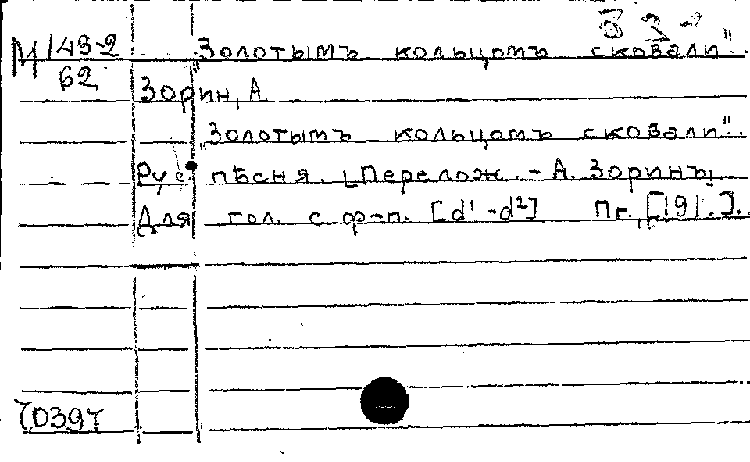 З 2 -
М 149-2 „Золотымъ кольцомъ сковали".
62
Зорин, А.
„Золотымъ кольцомъ сковали".
Рус пѣсня. [Перелож. - А. Зоринъ]
Для гол. с ф-п. [d¹-d²] Пг, [191.].